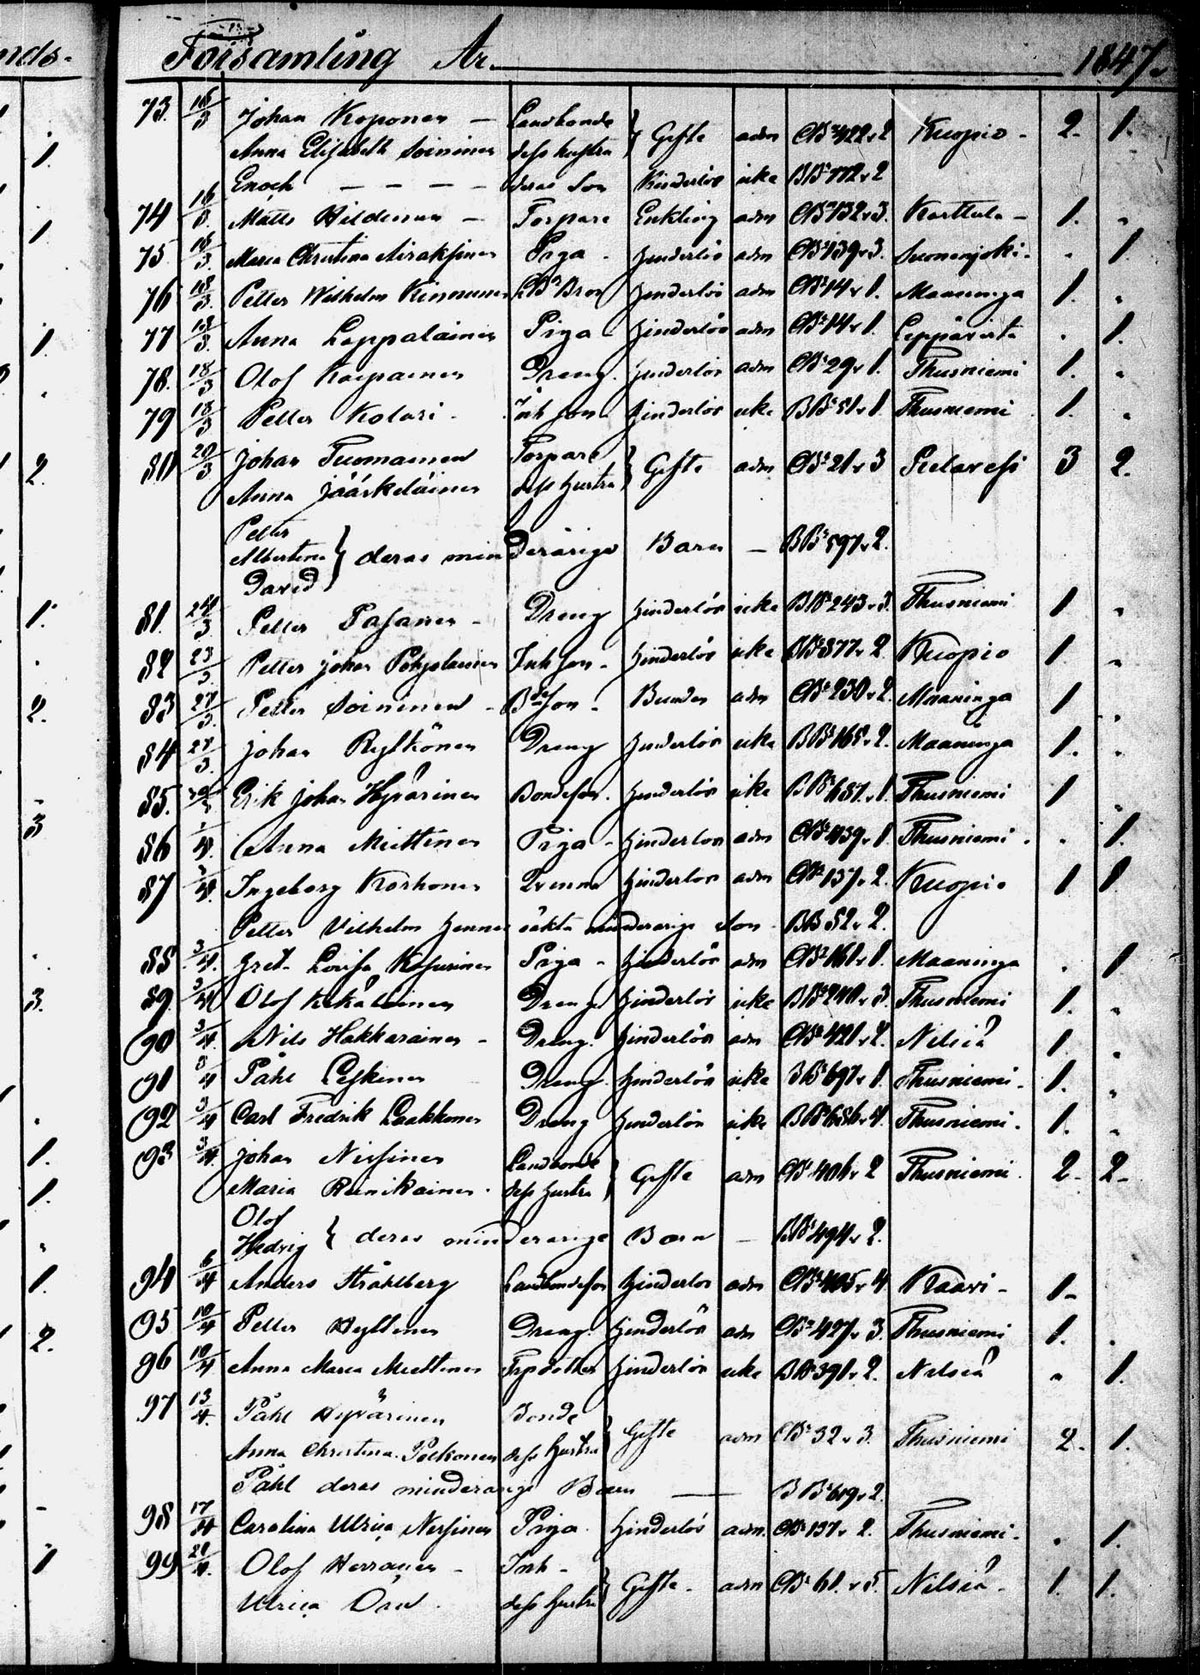 Församling År 1847.
73. 16/3 Johan Koponen — Landbonde } Gifte adm CB: 422 v 2 Kuopio - 2. 1.
Anna Elisabeth Soininen dess hustru
Enoch — — — — deras Son hinderlös icke BB 772 v 2
74 16/3 Matts Hildenen — Torpare Enkling adm CB: 132 v 3. Karttula - 1. "
75. 18/3. Maria Christina Airaksinen Piga - hinderlös adm CB: 139 v 3. Suonenjoki - " 1.
76 18/3. Petter Wilhelm Kinnunen hinderlös adm CB: 14 v 1. Maaninga 1. "
77 18/3. Anna Lappalainen Piga - hinderlös adm CB: 14 v 1. Leppävirta . 1.
78. 18/3 Olof Karpainen Dreng. hinderlös adm CB: 29 v 1. Thusniemi 1. "
79 18/3 Petter Kolari - Inh son - hinderlös icke BB: 51 v 1. Thusniemi 1. "
80 20/3 Johan Tuomainen Torpare } Gifte adm CB: 21 v 3 Pielavesi 3 2.
Anna Jääskeläinen dess hustru
Petter
Albertina } deras minderåriga Barn — BB: 597 v 2.
David
81. 24/3 Petter Pasanen - Dreng hinderlös icke BB: 243 v 3. Thusniemi 1 "
82 23/3. Petter Johan Pohjolainen Inh son - hinderlös icke BB: 877 v 2 Kuopio 1 "
83 27/3. Petter Soininen - Bdeson - Bunden adm CB: 230 v 2 Maaninga 1 .
84 27/3. Johan Rytkönen Dreng hinderlös icke BB: 165 v 2. Maaninga 1. "
85. Erik Johan Hyvärinen Bondeson. hinderlös icke BB: 687 v 1. Thusniemi 1 .
86 1/4. Anna Miettinen Piga - hinderlös adm CB: 439 v 1 Thusniemi . . 1.
87 2/4 Ingeborg Korhonen Qvinna hinderlös adm CB: 137 v 2. Kuopio 1 1
Petter Vilhelm hennes oäkta minderårige Son - BB 52 v 2.
88 3/4. Gret. Lovisa Kosunen Piga - hinderlös adm CB: 161 v 1. Maaninga . 1
89. 3/4 Olof Kekäläinen Dreng hinderlös icke BB: 240 v 3. Thusniemi 1. "
90 3/4. Nils Hakkarainen - Dreng. hinderlös adm CB: 421 v 2. Nilsiä 1 .
91 3/4 Påhl Leskinen Dreng. hinderlös icke BB: 697 v 1. Thusniemi. 1. "
92 3/4 Carl Fredrik Laakkonen Dreng hinderlös icke BB: 686 v 4. Thusniemi. 1. .
93 3/4 Johan Nissinen Landbonde } Gifte adm CB: 406 v 2 Thusniemi 2. 2.
Maria Reinikainen. dess hustru
Olof
Hedvig } deras minderåriga Barn — BB: 494 v 2.
94 6/4 Anders Stråhlberg Landbondeson hinderlös adm CB: 405 v 4 Kaavi - 1.
95 10/4 Petter Hyttinen Dreng. hinderlös adm CB: 427 v 3. Thusniemi 1. .
96 10/4 Anna Maria Miettinen Trpdotter hinderlös icke BB: 391 v 2. Nilsiä " 1.
97 13/4. Påhl Hyvärinen Bonde } Gifte adm CB: 32 v 3. Thusniemi 2. 1.
Anna Christina Pelkonen dess hustru
Påhl deras minderårige Barn — BB: 619 v 2.
98 17/4 Carolina Ulrica Nissinen Piga. hinderlös adm. CB: 137 v 2. Thusniemi. . 1.
99 21/4. Olof Herranen - Inh - } Gifte - adm CB: 61 v 5. Nilsiä. 1. 1.
Ulrica dess hustru